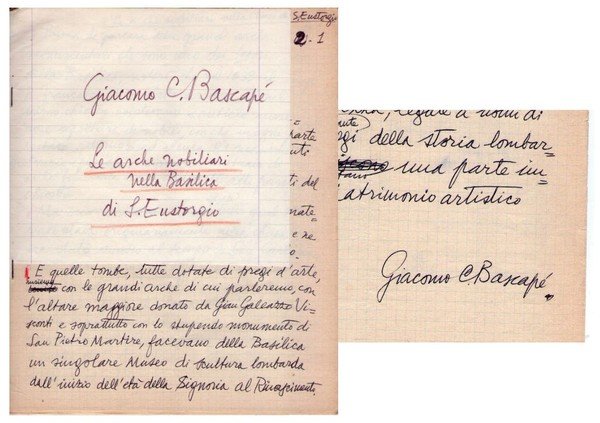 S. Eustorgio
2-1
Giacomo C. Bascapé
Le arche nobiliari
nella Basilica
di S. Eustorgio
E quelle tombe, tutte dotate di pregi d'arte,
insieme con le grandi arche di cui parleremo, con
l'altare maggiore donato da Gian Galeazzo Vi-
sconti e soprattutto con lo stupendo monumento di
San Pietro Martire, facevano della Basilica
un singolare Museo di scultura lombarda
dall'inizio dell'età della Signoria al Rinascimento.
legate a nomi di
della storia lombar-
una parte im-
atrimonio artistico
Giacomo C. Bascapé